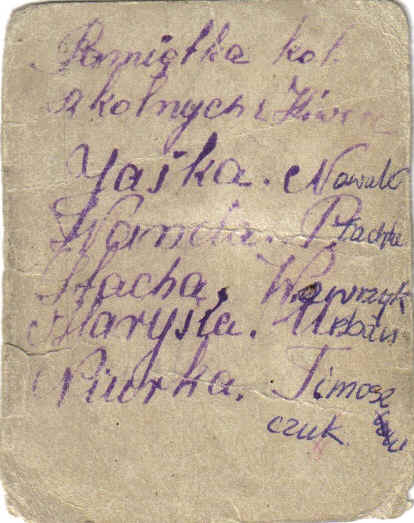 Pamiątka kol.
szkolnych z Kiwerc
Jaśka. Nowak
Wanda. Płachta
Stacha, Wawrzyk
Maryśka. Urban
Niurka. Timosz
czuk